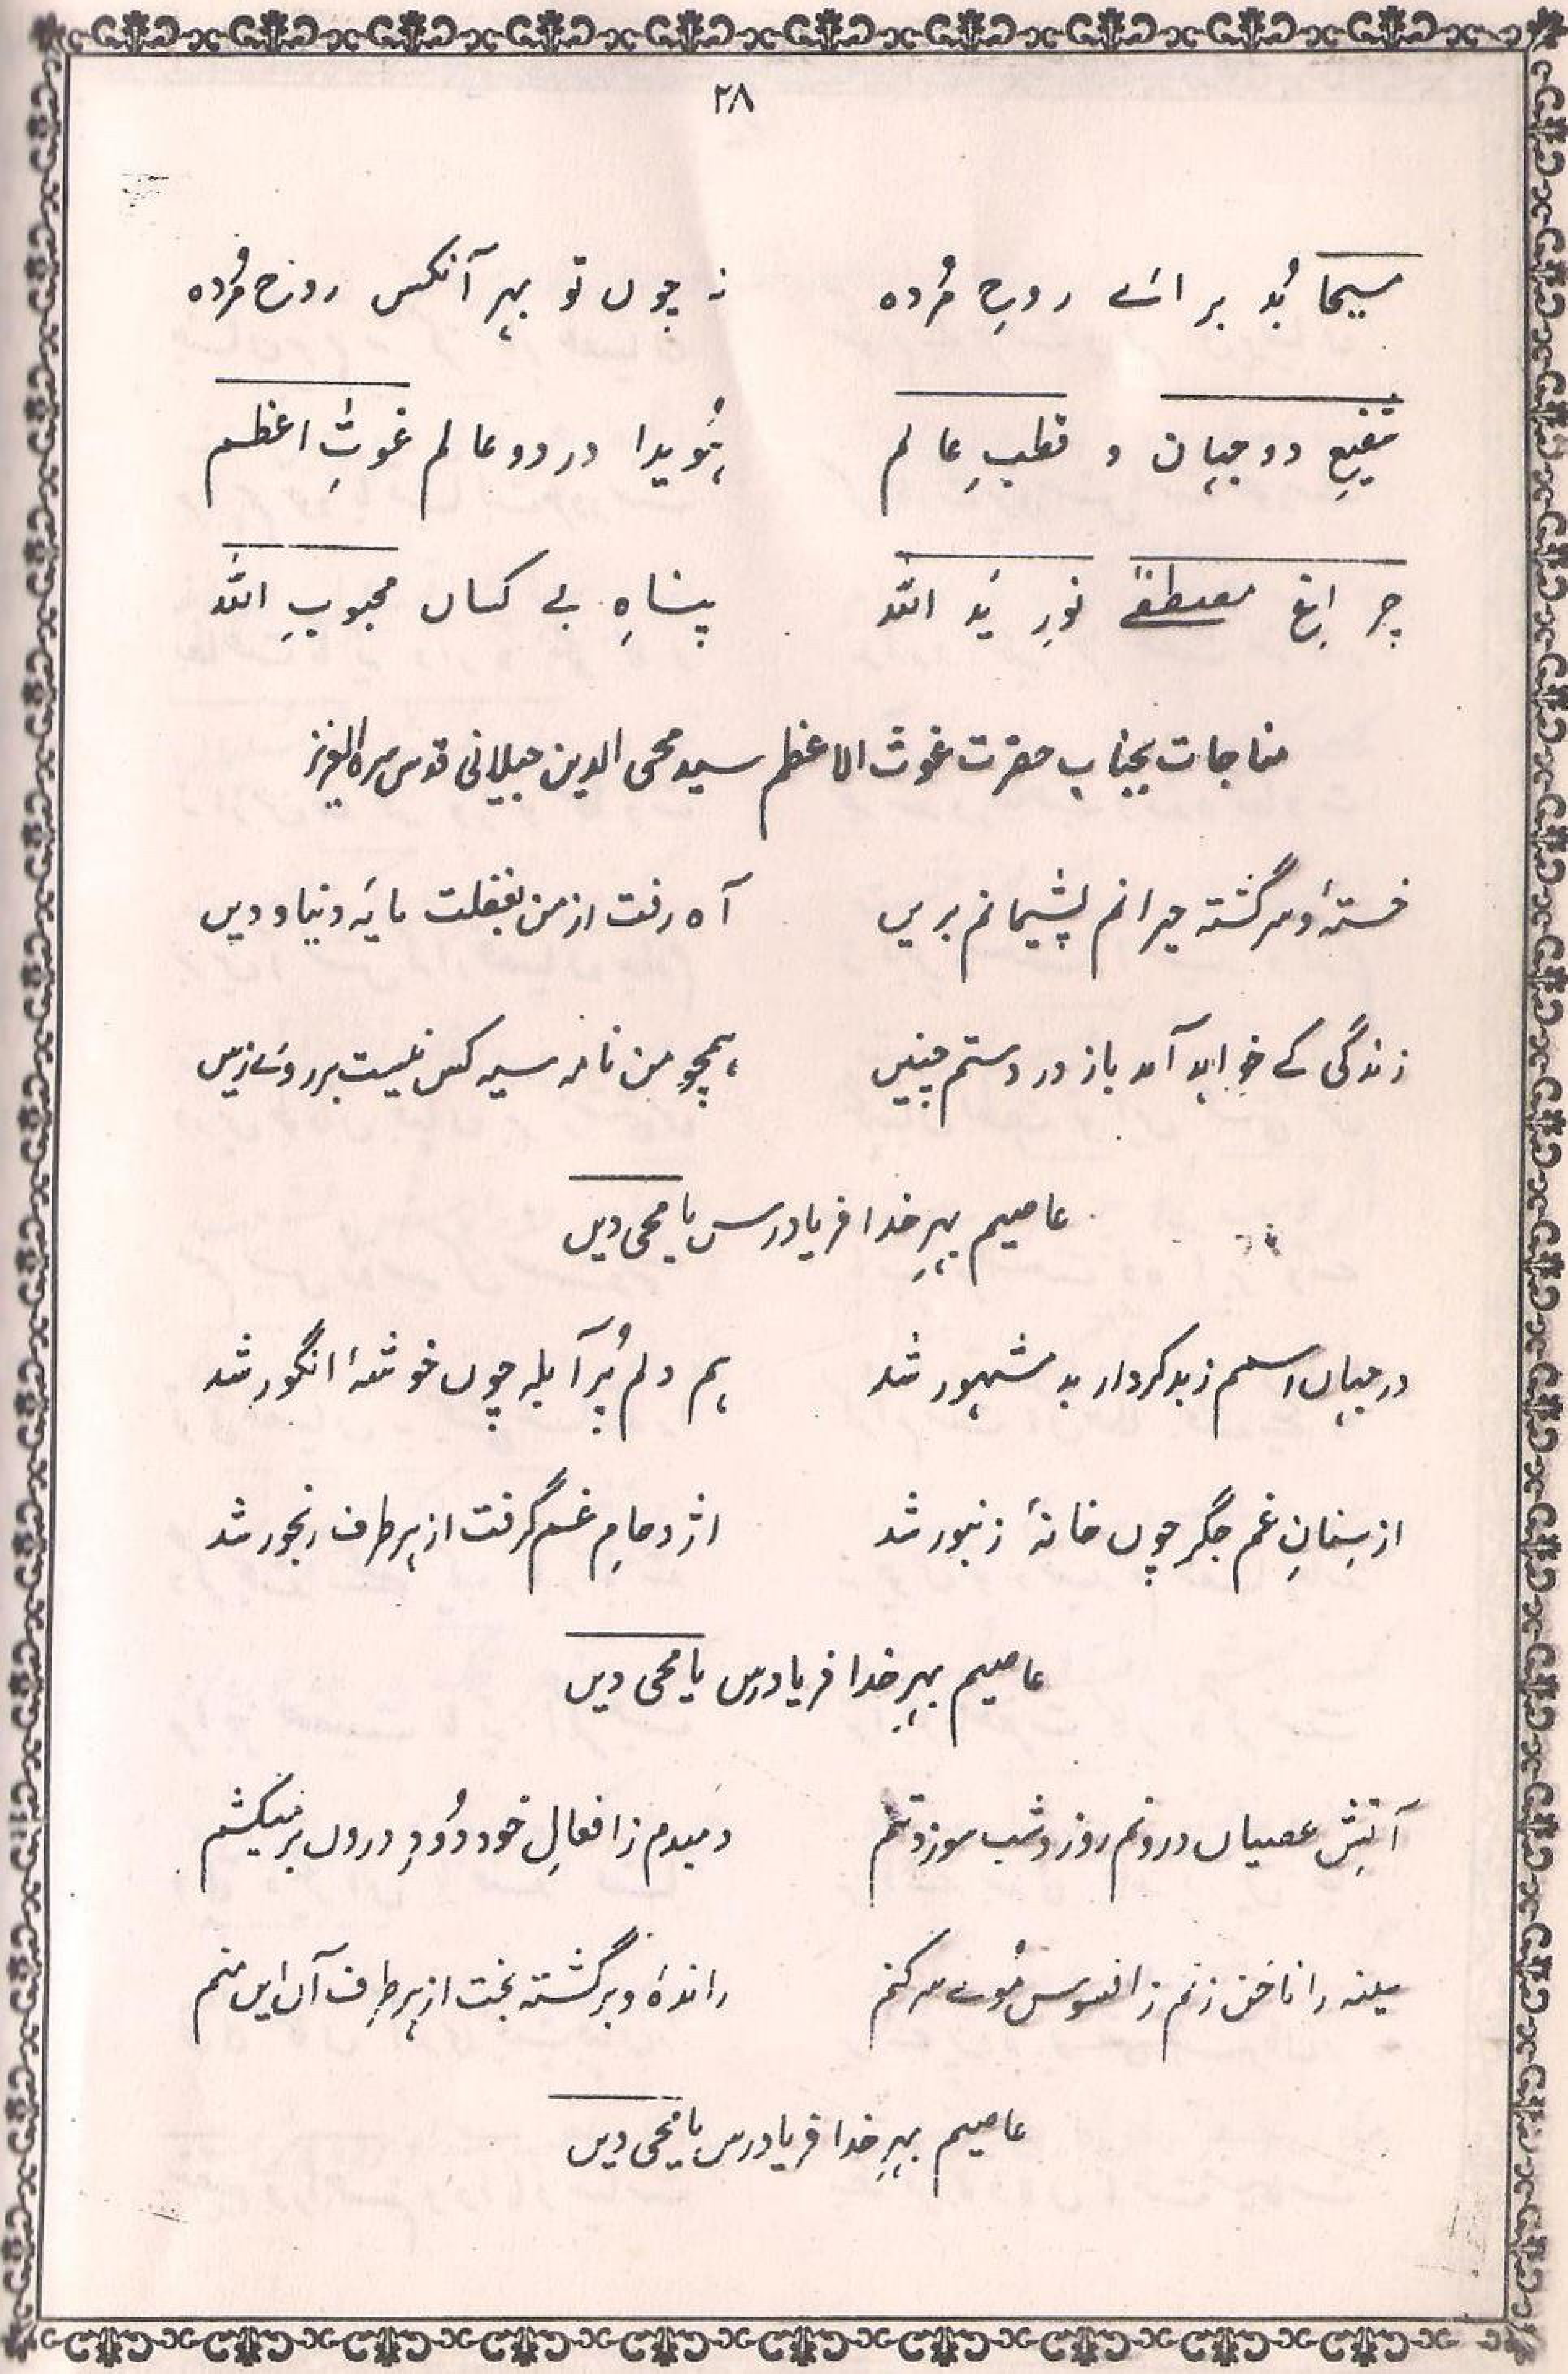 ۲۸
مسیحا بُد برائے روحِ مُرده نہ چوں تو بہر آنکس روزح مُرده
شفیعِ دو جہان و قطبِ عالم ہُویدا در دو عالم غوثِ اعظم
چراغِ مصطفےٰ نورِ یَد اللّٰہ پناهِ بے کساں محبوبِ اللّٰہ
مناجات بجناب حضرت غوث الاعظم سید محی الدین جیلانی قدس سره العزیز
خستۂ و سرگشته حیرانم پشیمانم بریں آه رفت از من بغفلت مایۂ دنیا و دیں
زندگی کے خواہد آمد باز در دستم چنیں ہمچو من نامہ سیہ کس نیست بر روئے زمیں
عاصیم بہرِ خدا فریادرس یا محی دیں
در جہاں اسمم ز بد کردار بد مشہور شد ہم دلم پُر آبلہ چوں خوشۂ انگور شد
از سِنانِ غم جگر چوں خانۂ زنبور شد اژدحامِ غم گرفت از ہر طرف رنجور شد
عاصیم بہرِ خدا فریادرس یا محی دیں
آتشِ عصیاں درونم روز و شب سوزد تنم دمبدم ز افعالِ خود دُودِ دروں بر میکشم
سینہ را ناخن زنم ز افسوس مُوئے سر کنم راندۂ و برگشته بخت از ہر طرف آں ایں منم
عاصیم بہرِ خدا فریادرس یا محی دیں